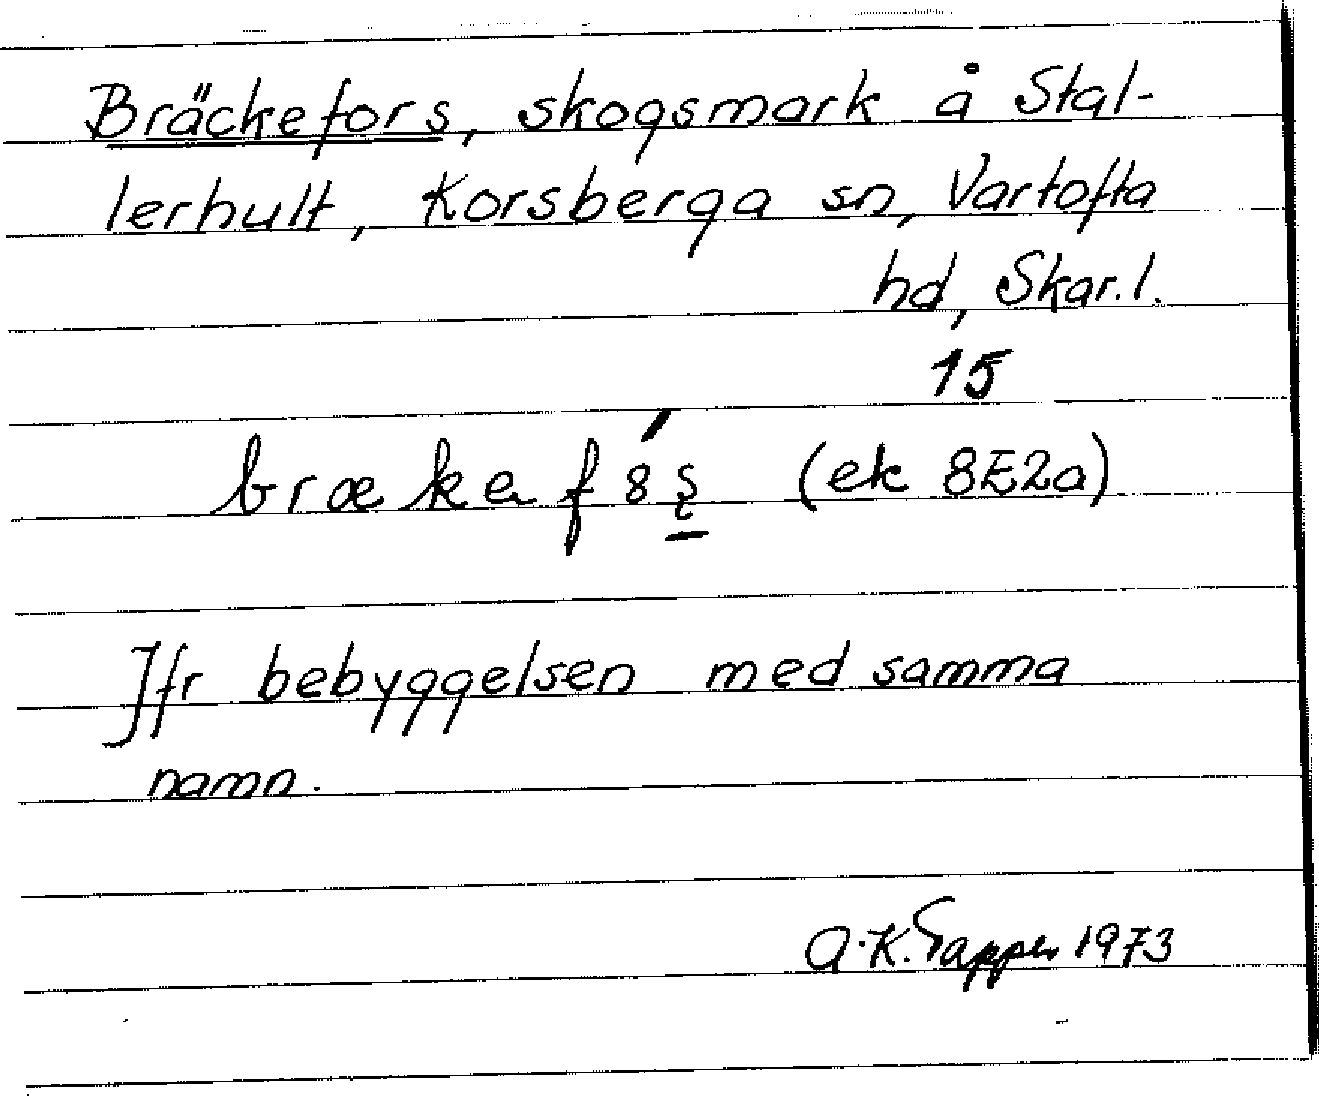 Bräckefors, skogsmark å Stal-
lerhult, Korsberga sn, Vartofta
hd, Skar. l.
15
(ek 8E2a)
Jfr bebyggelsen med samma
namn.
A.K. Tapper 1973